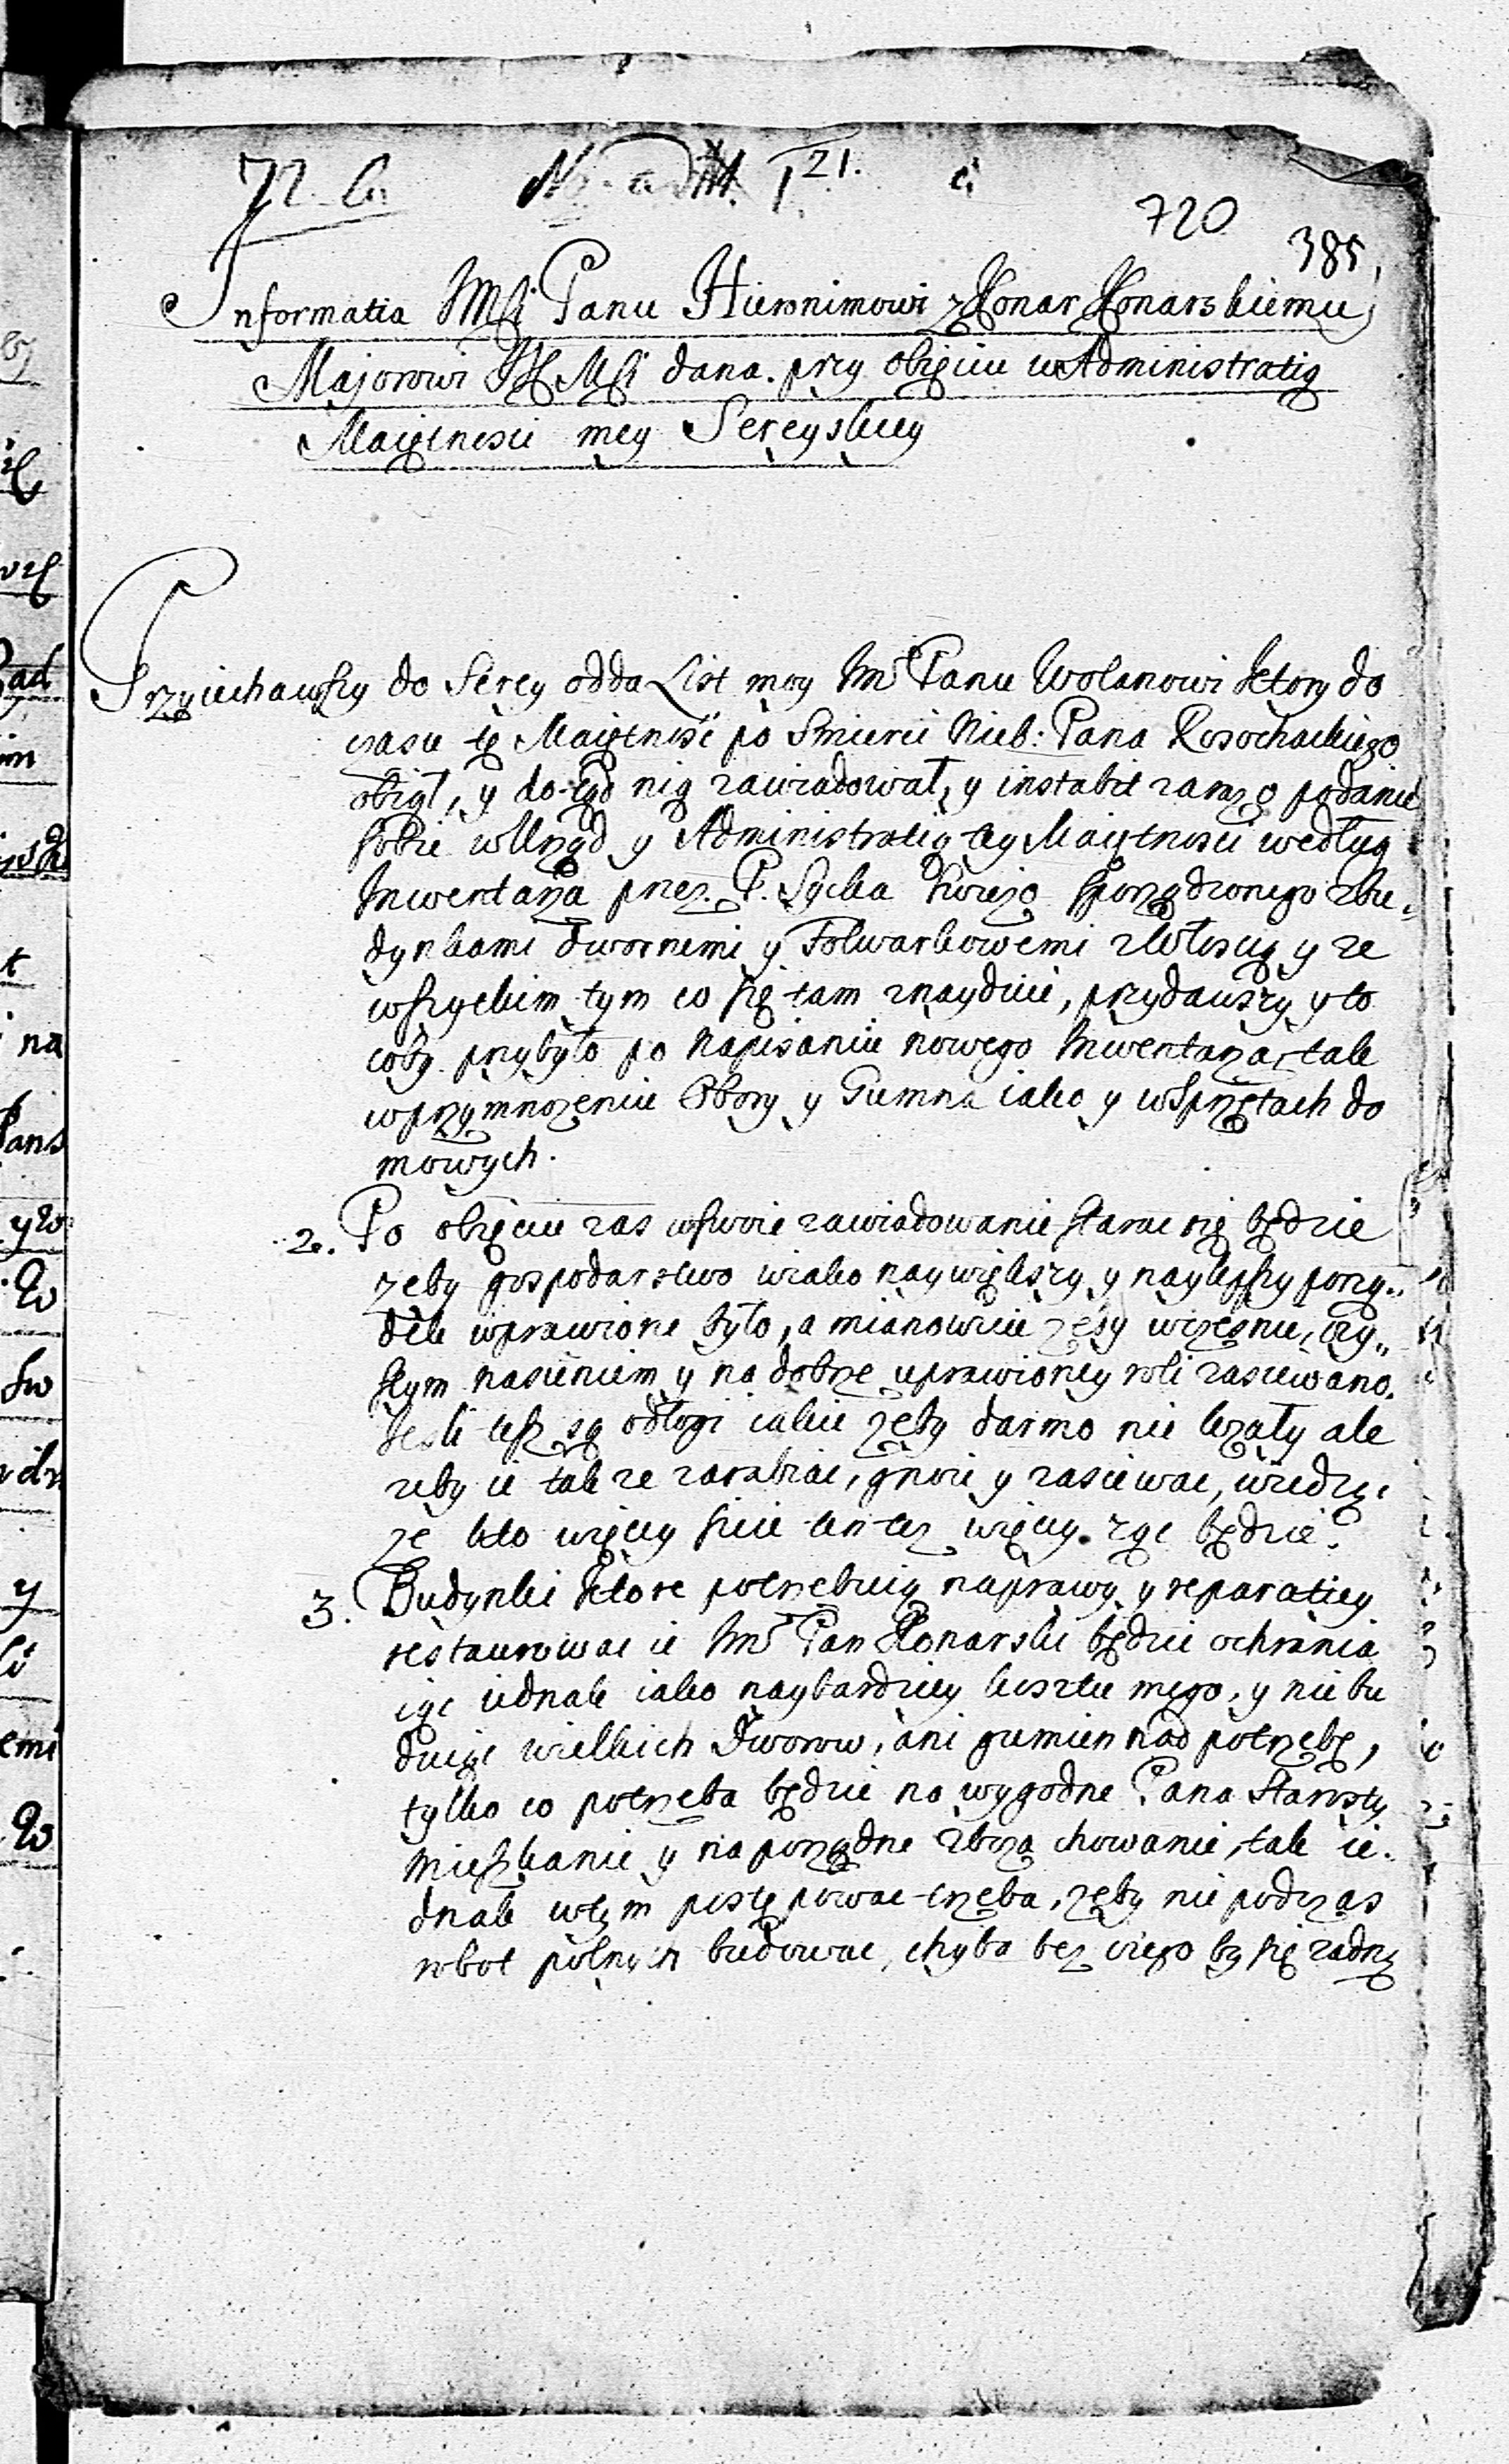 720
385
Informatia JMći Panu Hieronimowi z Konar Konarskiemu
Majorowi JKMći dana. przy obięciu w Administratią
Maiętnosci mey Sereyskiey
Przyiechawszy do Serey odda List moy Jmć Panu Wolanowi ktory do
czasu tę Maiętność po Smierci Nieb: Pana Rosochackiego
obiął, y do tąd nią zawiadował, y instabit zaraz o podanie
sobie w Urząd y Administratią tey Maiętnosci według
Inwentarza przez P. Sycka swiezo sporządzonego z bu-
dynkami dwornemi y Folwarkowemi z Włoscią y ze
wszyckim tym co się tam znaydzie, przydawszy y to
coby przybyło po napisaniu nowego Inwentarza, tak
w przymnozeniu Obory y Gumna iako y w Sprzętach do
mowych.
2. Po obięciu zas w swoie zawiadowanie starac się będzie
zeby gospodarstwo w iako naywiększy y naylepszy porzą-
dek wprawione było, a mianowicie zeby wczesnie, czy-
stym nasieniem y na dobrze uprawioney roli zasiewano.
Jesli tesz są odłogi iakie zeby darmo nie lezały ale
zeby ie takze zarabiac, gnoic y zasiewac, wiedząc
ze kto więcey sieie ten tez więcey ząc będzie.
3. Budynki ktore potrzebuią naprawy y reparatiey
restaurowac ie Jmć Pan Konarski będzie ochrania
iąc iednak iako naybardziey kosztu mego, y nie bu
duiąc wielkich Dworow, ani gumien nad potrzebę,
tylko co potrzeba będzie na wygodne Pana Starosty
mieszkanie y na porządne zboza chowanie, tak ie-
dnak w tym postępowac trzeba, zeby nie podczas
robot polnych budowac, chyba bez czego by się zadną